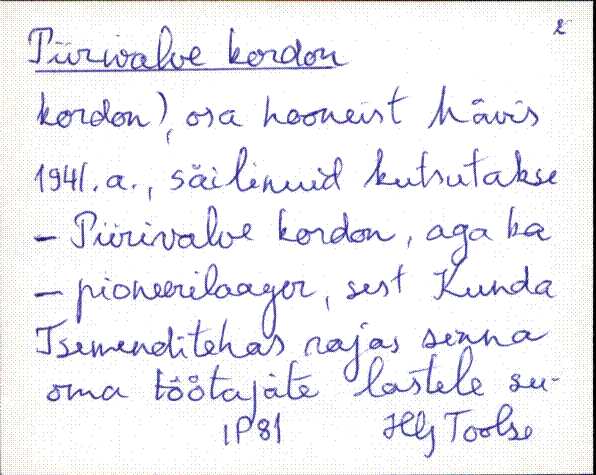 2
Piirivalve kordon
kordon), osa hooneist hävis
1941. a., säilinuid kutsutakse
- Piirivalve kordon, aga ka
- pioneerilaager, sest Kunda
Tsemenditehas rajas sinna
oma töötajate lastele su-
IP81 Hlj Toolse